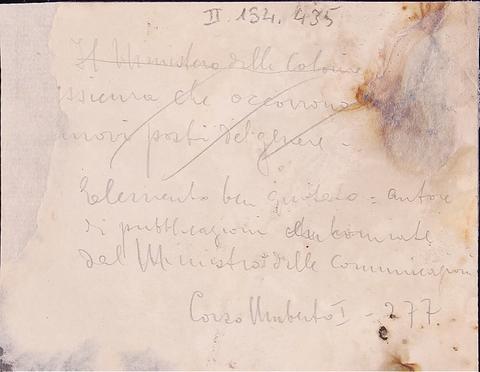 II. 134. 435
Il Ministero delle Colonie
ssicura che occorrono
nuovi posti del genere -
Elemento ben quotato = autore
di pubblicazioni
del Ministro delle Comunicazioni
Corso Umberto I - 277